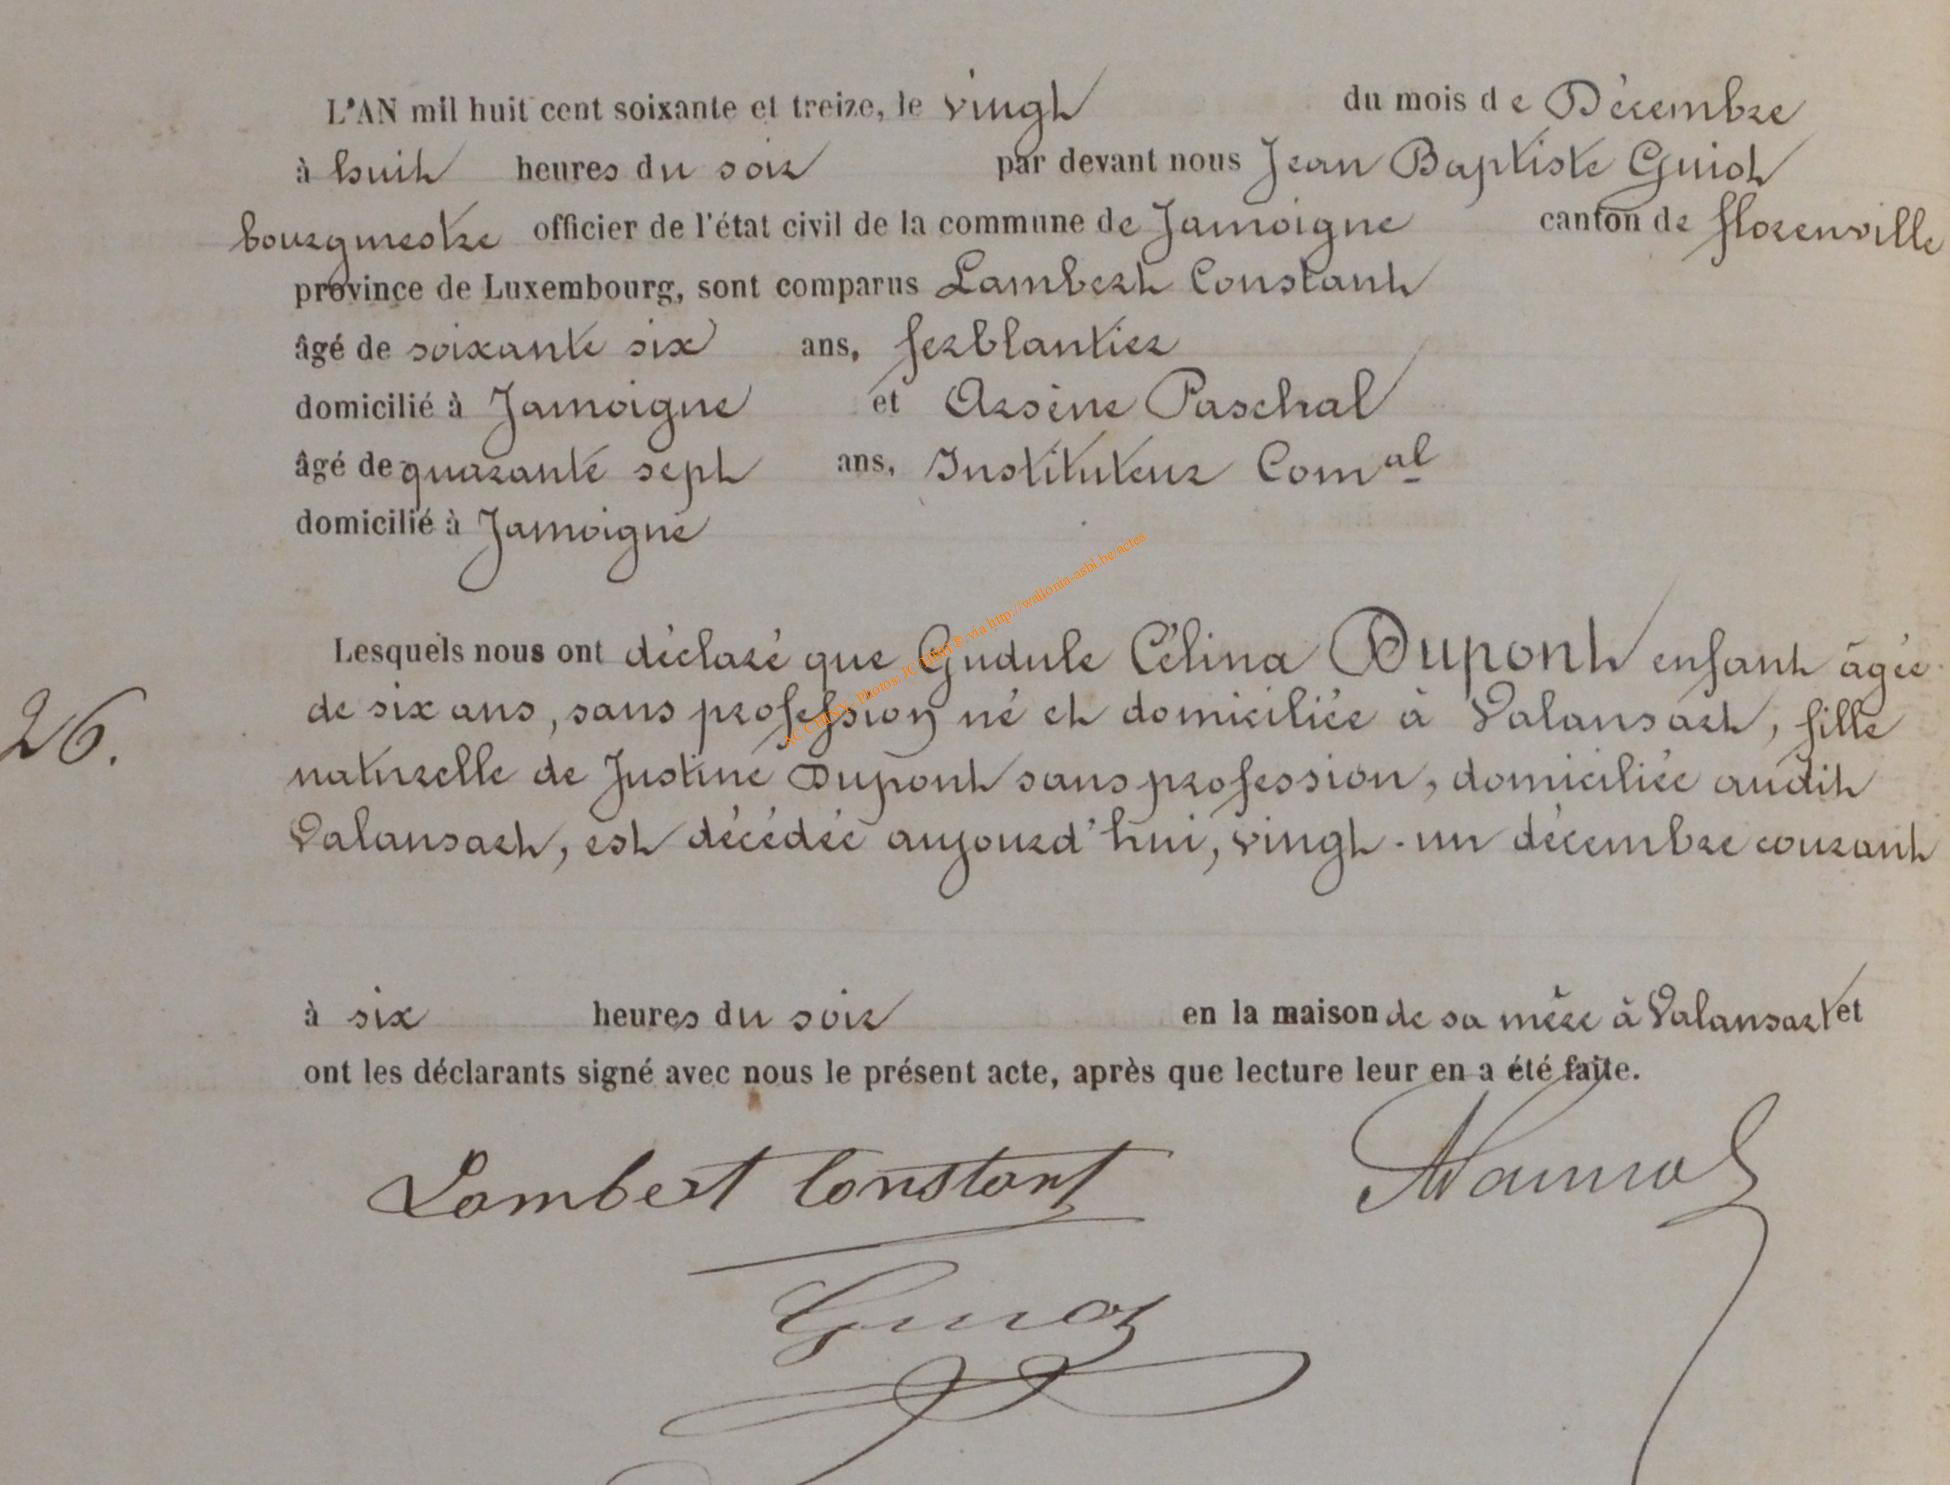 L'AN mil huit cent soixante et treize, le vingt du mois de Décembre
à huit heures du soir par devant nous Jean Baptiste Guiot
bourgmestre officier de l'état civil de la commune de Jamoigne canton de florenville
province de Luxembourg, sont comparus Lambert Constant
âgé de soixante six ans, ferblantier
domicilié à Jamoigne et Arsène Paschal
âgé de quarante sept ans, Instituteur Comal
domicilié à Jamoigne
Lesquels nous ont déclaré que Gudule Célina Dupont enfant âgée
26. de six ans, sans profession né et domiciliée à Valansart, fille
naturelle de Justine Dupont sans profession, domiciliée audit
Valansart, est décédée aujourd'hui, vingt-un décembre courant
à six heures du soir en la maison de sa mère à Valansart et
ont les déclarants signé avec nous le présent acte, après que lecture leur en a été faite.
Lambert Constant
Guiot
via http://wallonia-asbl.be/actes